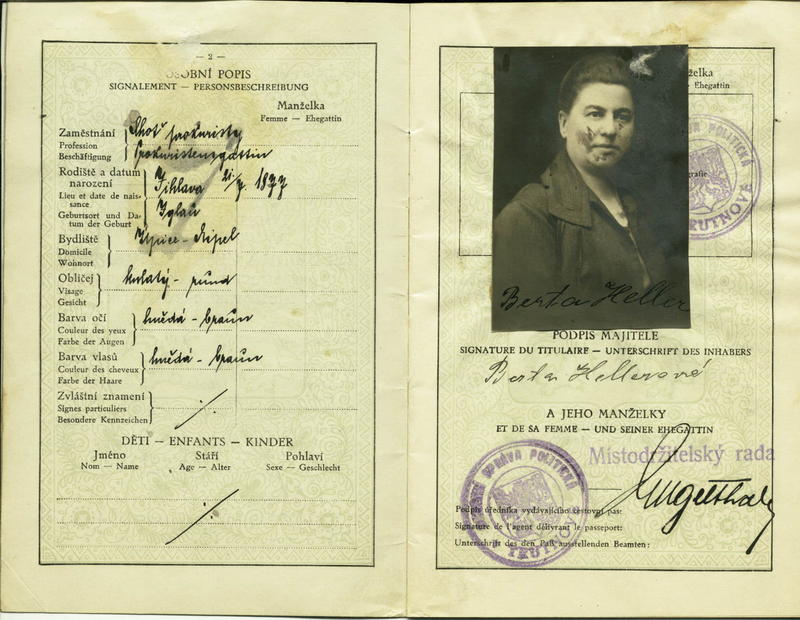 — 2 —
OSOBNÍ POPIS
SIGNALEMENT — PERSONSBESCHREIBUNG
Manželka
Femme — Ehegattin
Zaměstnání
Profession
Beschäftigung
Choť prokuristy
Prokuristensgattin
Rodiště a datum
narození
Lieu et date de nais-
sance
Geburtsort und Da-
tum der Geburt
Jihlava 21/7. 1877
Iglau
Bydliště
Domicile
Wohnort
Úpice - Eipel
Obličej
Visage
Gesicht
kulatý - rund
Barva očí
Couleur des yeux
Farbe der Augen
hnědá - braun
Barva vlasů
Couleur des cheveux
Farbe der Haare
hnědá - braun
Zvláštní znamení
Signes particuliers
Besondere Kennzeichen
DĚTI — ENFANTS — KINDER
Jméno Stáří Pohlaví
Nom — Name Age — Alter Sexe — Geschlecht
želka
Ehegattin
grafie
POLITICKÁ
TRUTNOVĚ
Berta Heller
PODPIS MAJITELE
SIGNATURE DU TITULAIRE — UNTERSCHRIFT DES INHABERS
Berta Hellerové
A JEHO MANŽELKY
ET DE SA FEMME — UND SEINER EHEGATTIN
Místodržitelský rada
SPRÁVA POLITICKÁ
TRUTNO
Podpis úředníka vydávajícího cestovní pas:
Signature de l'agent délivrant le passeport:
Unterschrift des den Paß ausstellenden Beamten: